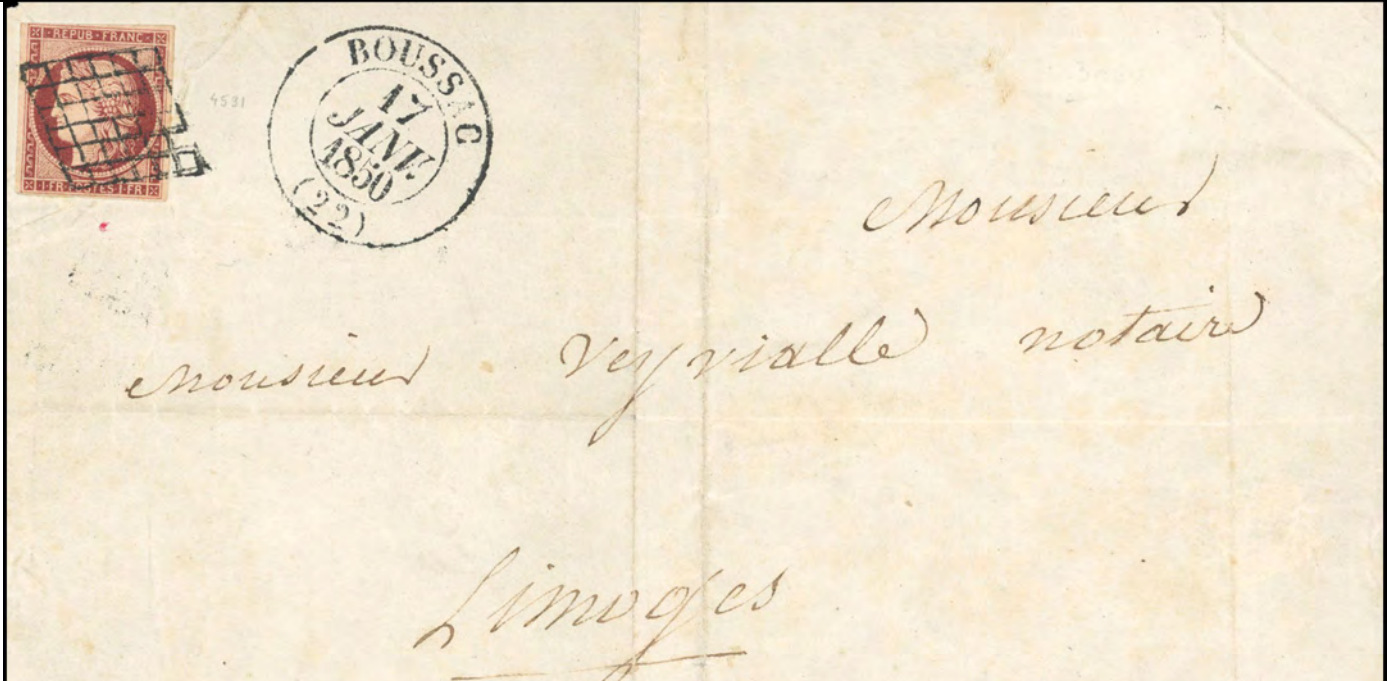 REPUB·FRANC·
1·FR·POSTES·1·FR
4531
BOUSSAC
17
JANV.
1850
(22)
Monsieur
Monsieur Veyvialle notaire
Limoges